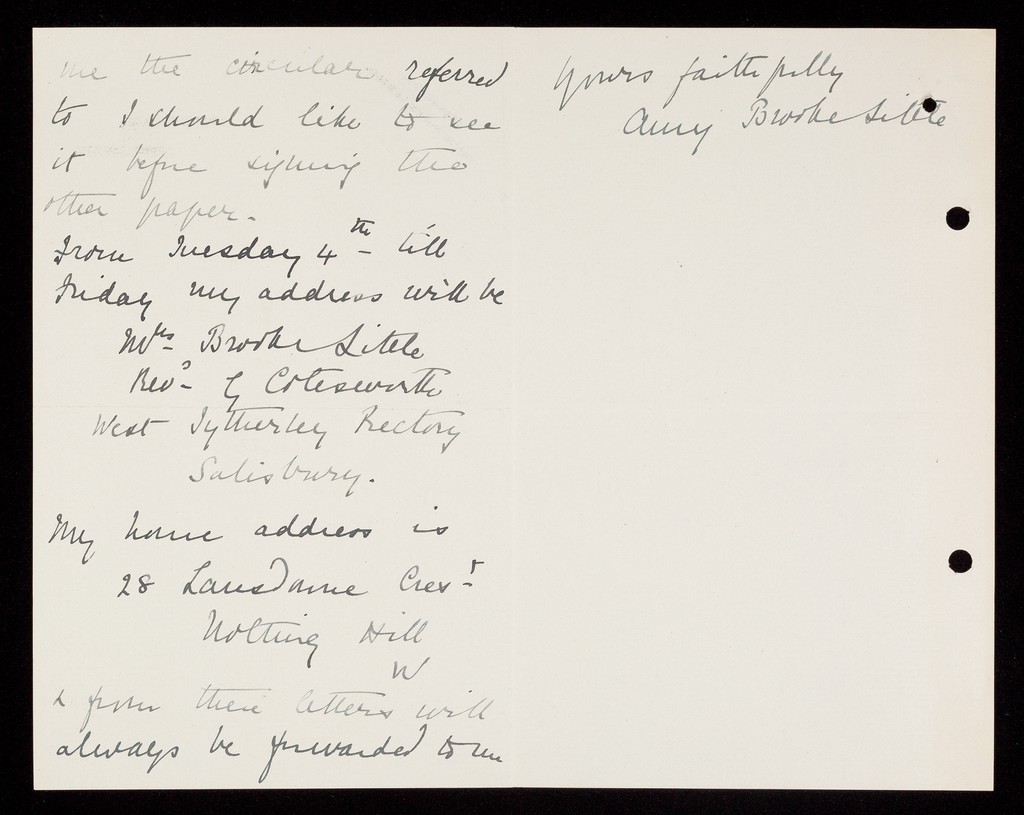 me the circular referred
to I should like to see
it before signing the
other paper.
From Tuesday 4th till
Friday my address will be
Mrs Brooke Little
Revd G Cotesworth
West Tytherley Rectory
Salisbury.
My home address is
28 Lansdowne Crest
Notting Hill
W
& from there letters will
always be forwarded to me
Yours faithfully
Amy Brooke Little